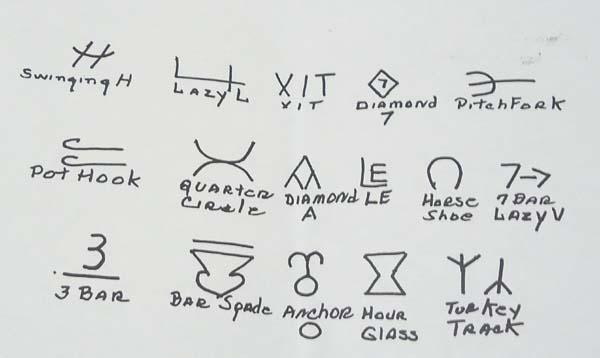 Swinging H
LAZY L
XIT
XIT
7
DIAMOND
7
PitchFork
Pot Hook
QUARTER
CIRCLE
DIAMOND
A
LE
LE
HORSE
Shoe
7
7 BAR
LAZY V
3
3 BAR
BAR Spade
ANCHOR
O
HOUR
GLASS
TURKEY
TRACK